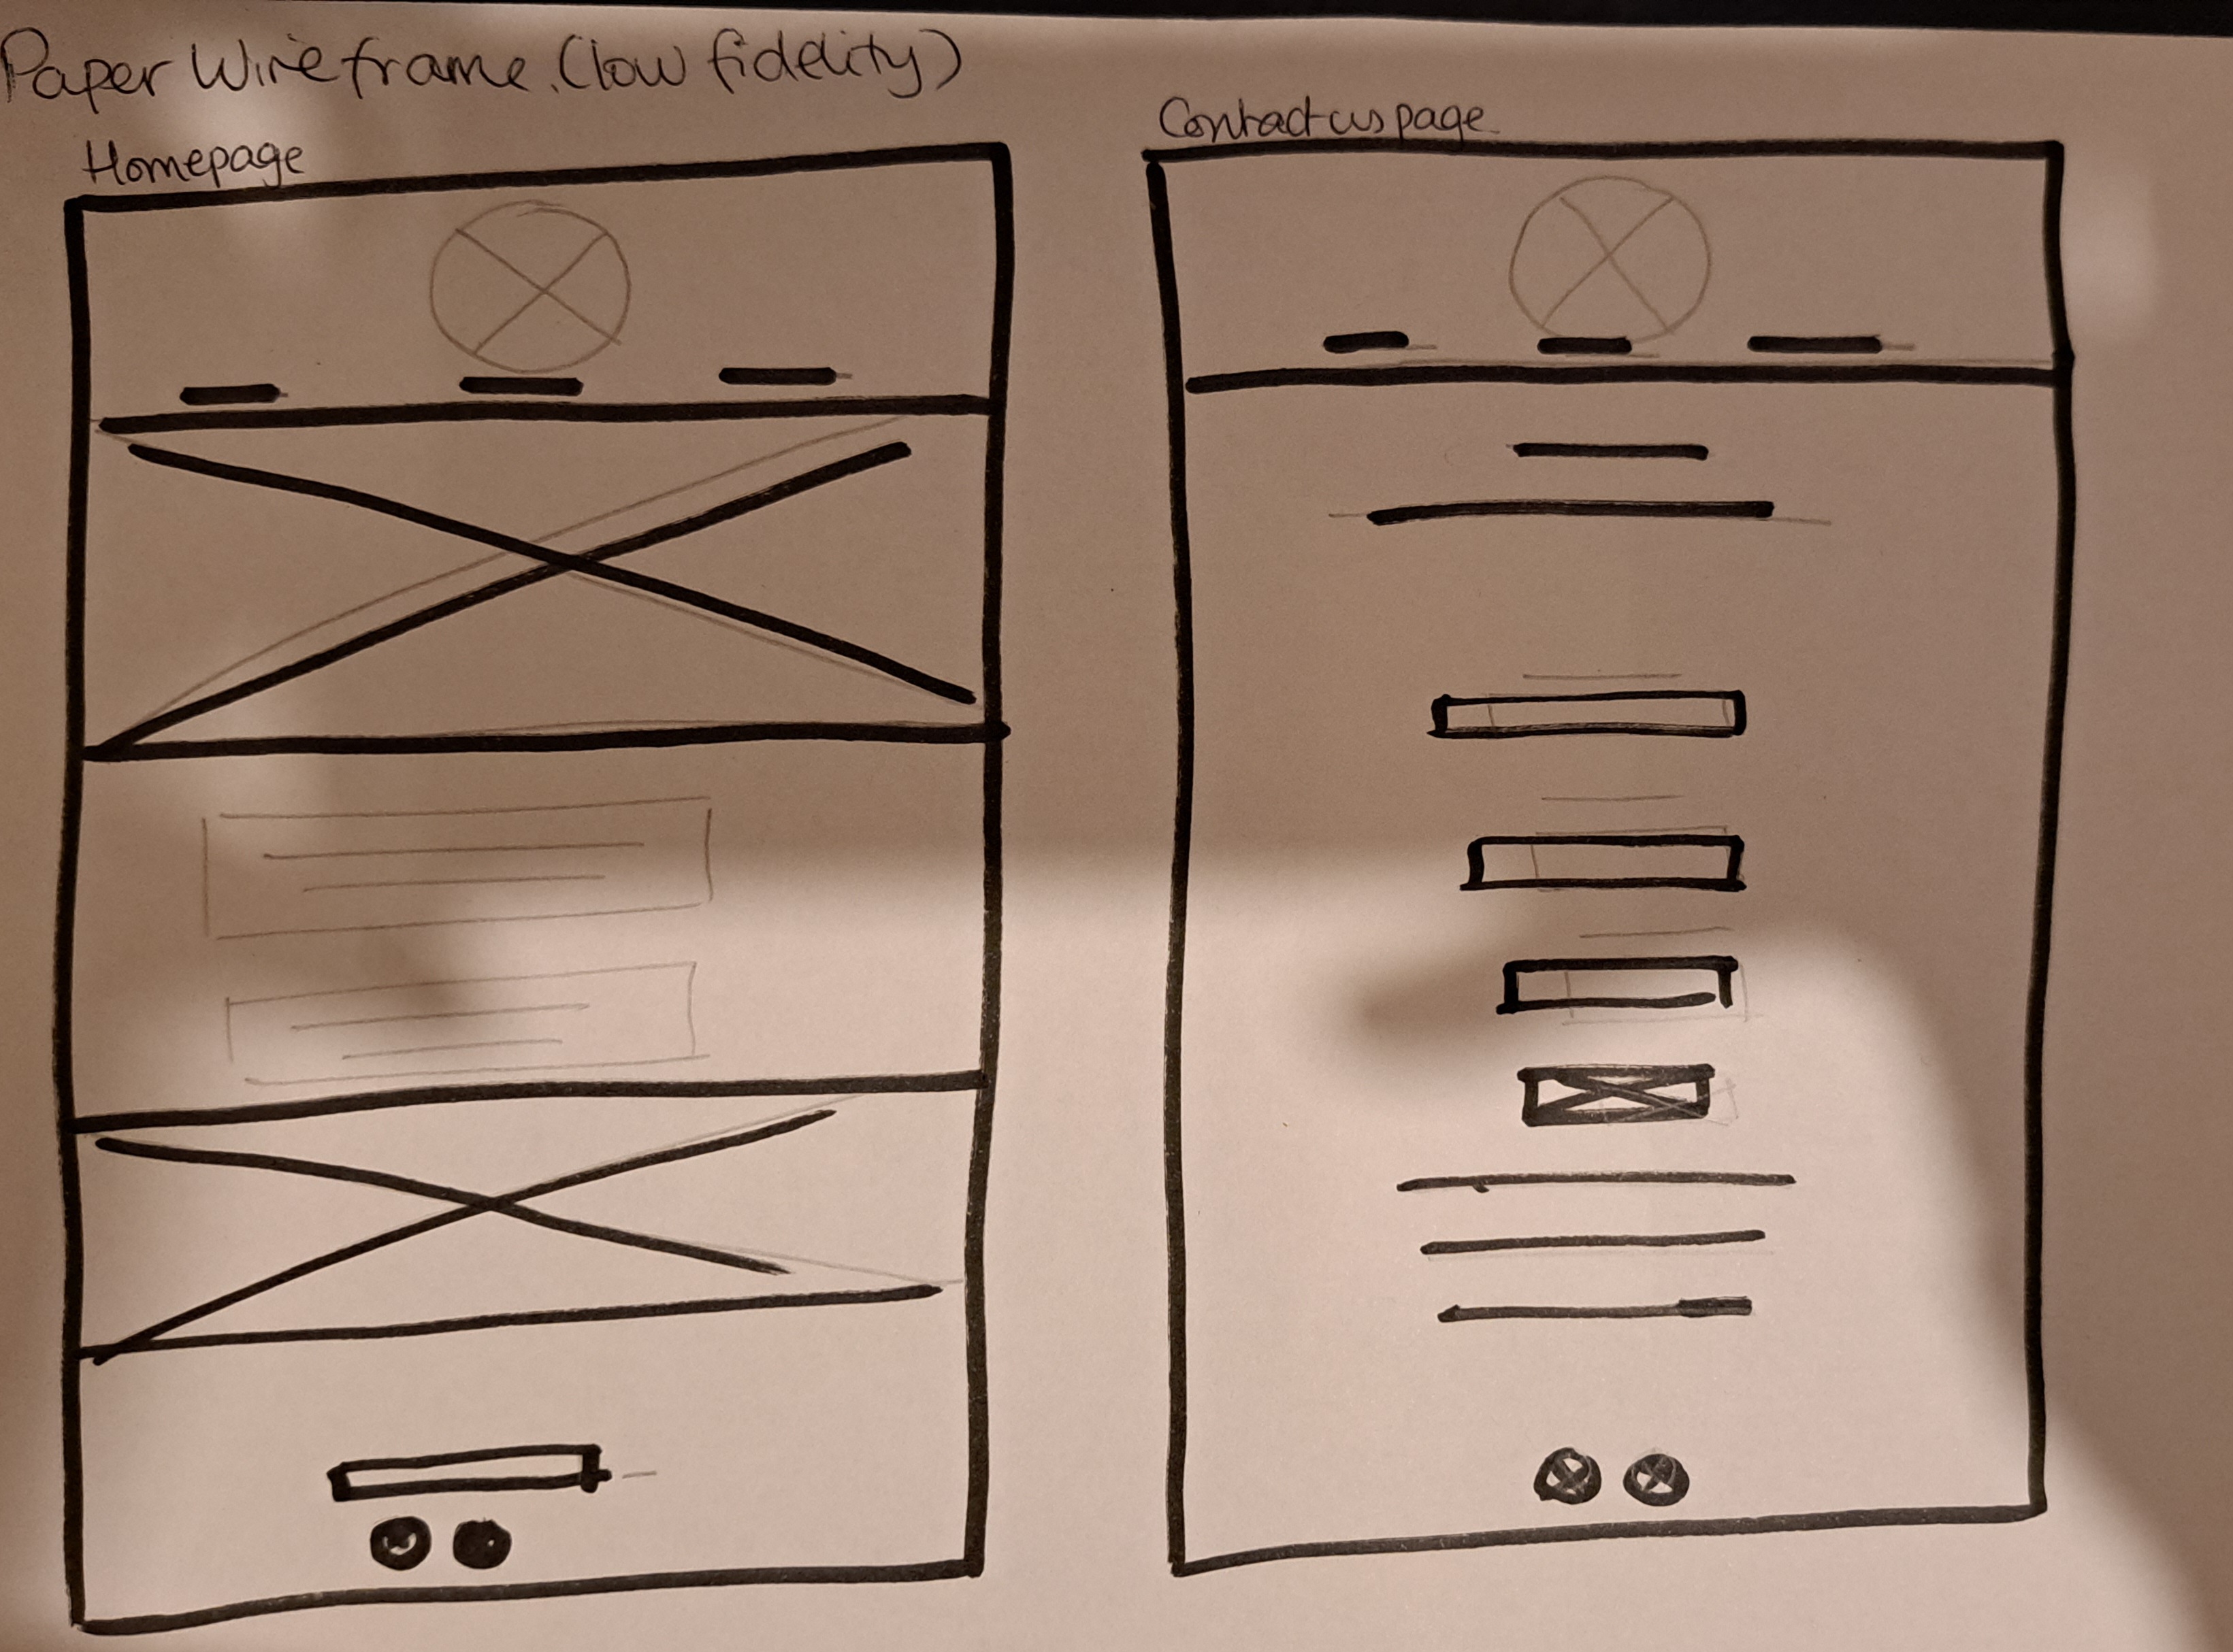 Paper Wireframe. (low fidelity)
Homepage
Contact us page